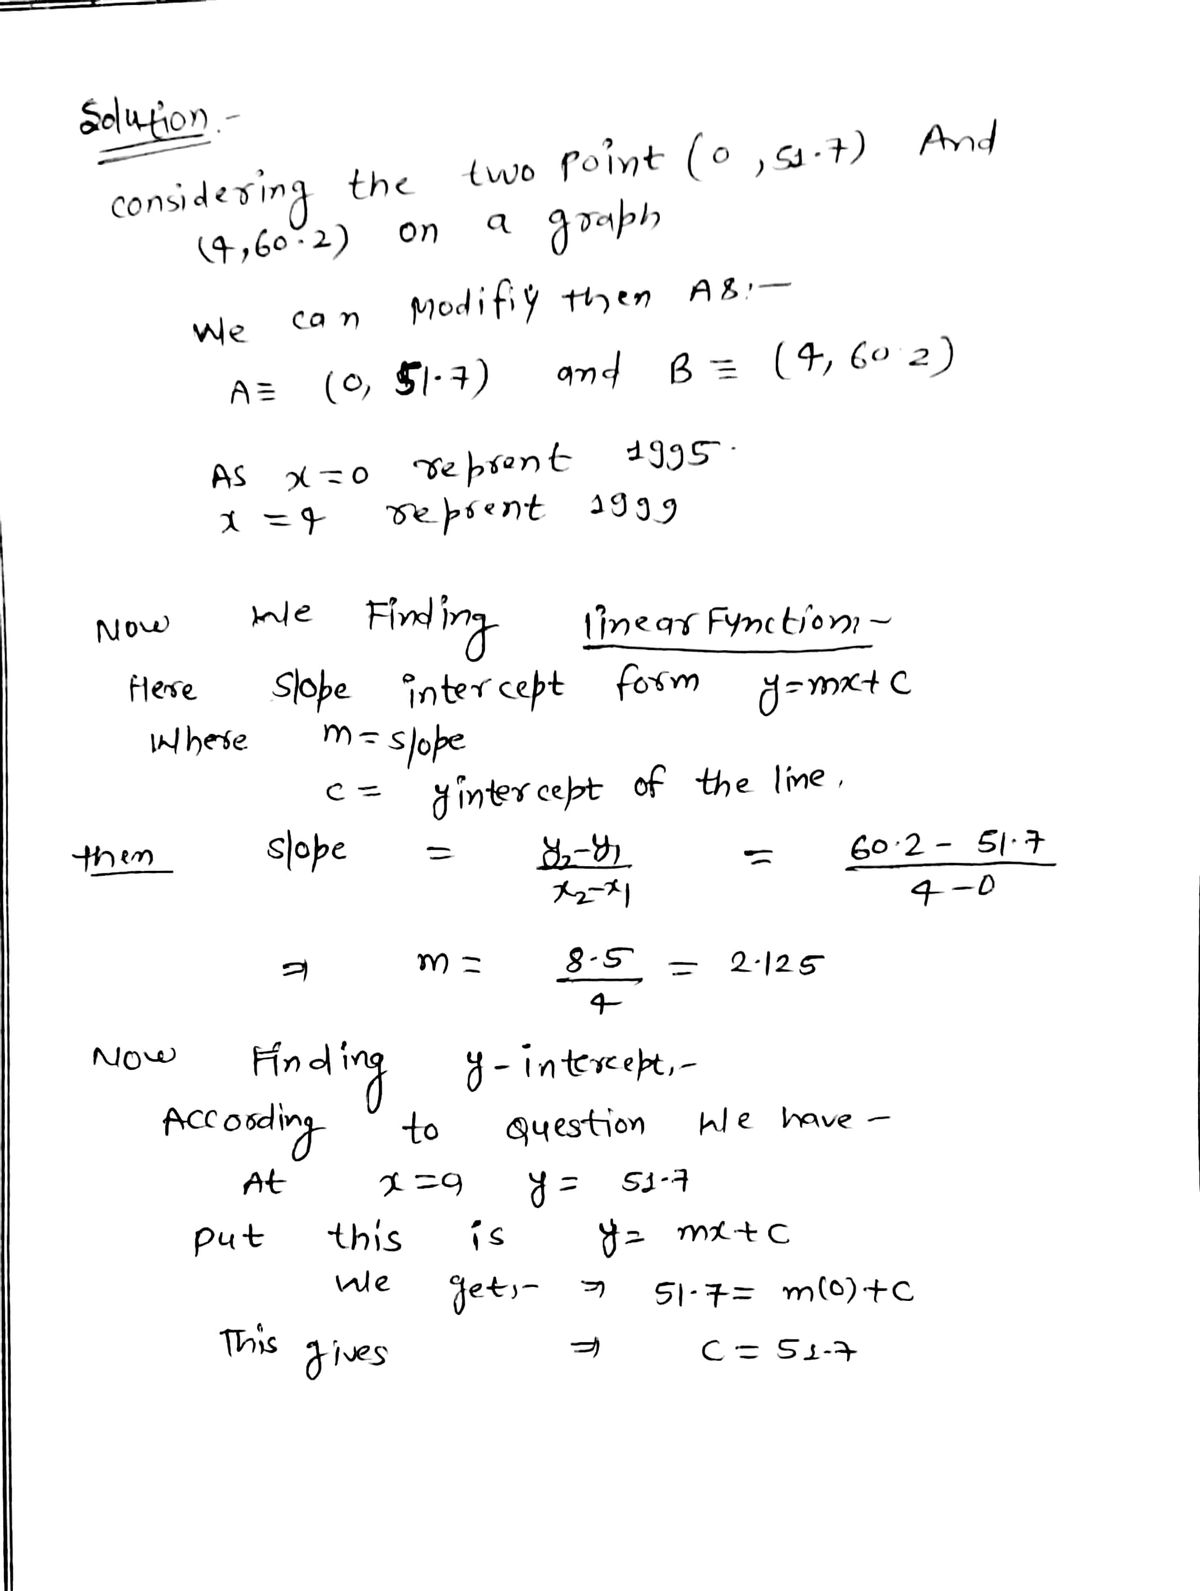 Solution.-
considering the two point (0,51.7) And
(4,60.2) on a graph
We can Modifiy then AS:-
A≡ (0, 51.7) and B ≡ (4, 60.2)
As x=0 reprent 1995.
x=4 reprent 1999
Now We Finding linear Function:-
Here slope intercept form y=mx+c
Where m=slope
c= y intercept of the line,
then slope = y₂-y₁/x₂-x₁ = 60.2 - 51.7/4-0
⇒ m= 8.5/4 = 2.125
Now Finding y-intercept,-
According to question We have -
At x=9 y= 51.7
put this is y= mx+c
We get,- ⇒ 51.7= m(0)+c
This gives ⇒ c= 51.7